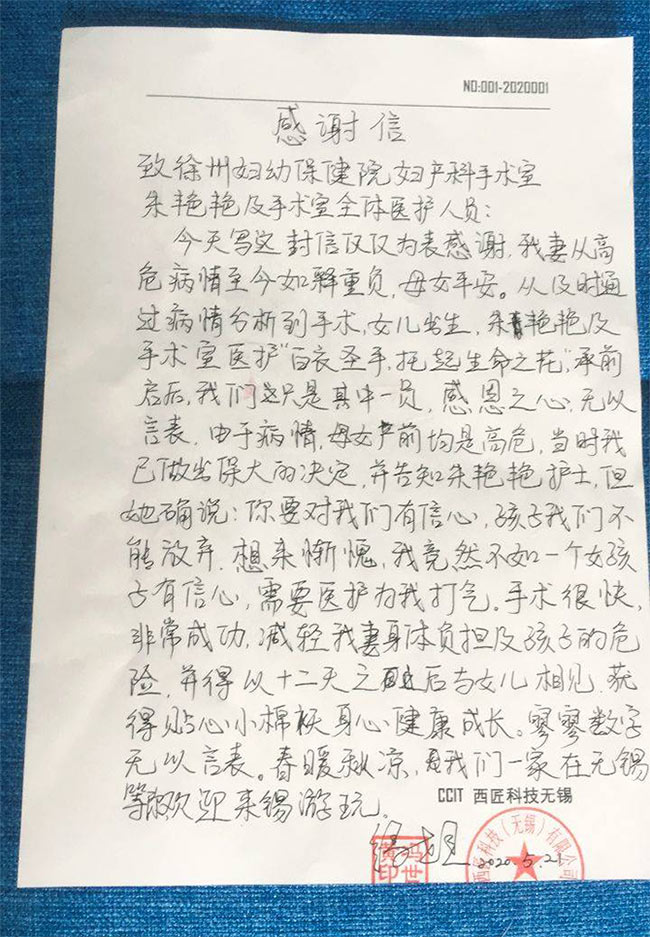 NO:001-2020001
感谢信
致徐州妇幼保健院妇产科手术室
朱艳艳及手术室全体医护人员:
今天写这封信仅仅为表感谢,我妻从高
危病情至今如释重负,母女平安。从及时通
过病情分析到手术,女儿出生,朱艳艳及
手术室医护"白衣圣手,托起生命之花",承前
启后,我们这只是其中一员,感恩之心,无以
言表,由于病情,母女产前均是高危,当时我
已做出保大的决定,并告知朱艳艳护士,但
她确说:你要对我们有信心,孩子我们不
能放弃.想来惭愧,我竟然不如一个女孩
子有信心,需要医护为我打气。手术很快,
非常成功,减轻我妻身体负担及孩子的危
险,并得以十二天之后与女儿相见.获
得贴心小棉袄身心健康成长。寥寥数字
无以言表。春暖秋凉,我们一家在无锡
等欢迎来锡游玩。
CCIT 西匠科技无锡
2020.5.21
西匠科技(无锡)有限公司